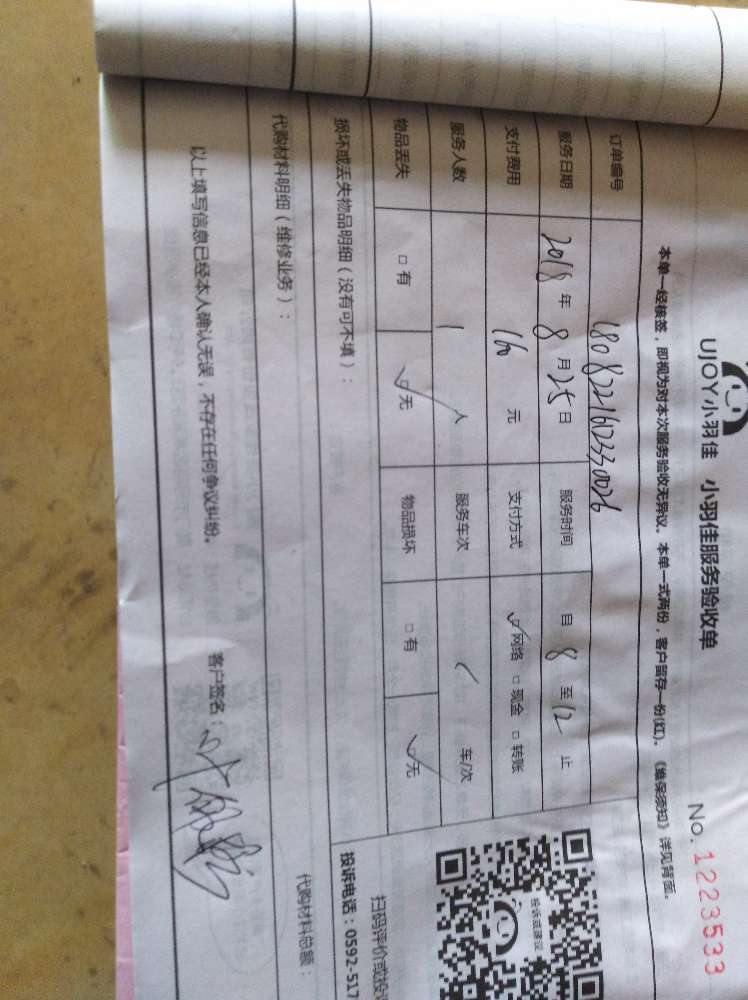 UJOY小羽佳 小羽佳服务验收单 No. 1223533
本单一经核签，即视为对本次服务验收无异议。本单一式两份，客户留存一份(红)。《维保须知》详见背面。
订单编号 1808221612330026
服务日期 2018年8月25日 服务时间 自8至12止
支付费用 160元 支付方式 ☑网络 □现金 □转账
服务人数 1人 服务车次 / 车/次
物品丢失 □有 ☑无 物品损坏 □有 ☑无
损坏或丢失物品明细（没有可不填）：
代购材料明细（维修业务）：
代购材料总额：
投诉或建议
扫码评价或投
投诉电话：0592-517
以上填写信息已经本人确认无误，不存在任何争议纠纷。
客户签名：叶